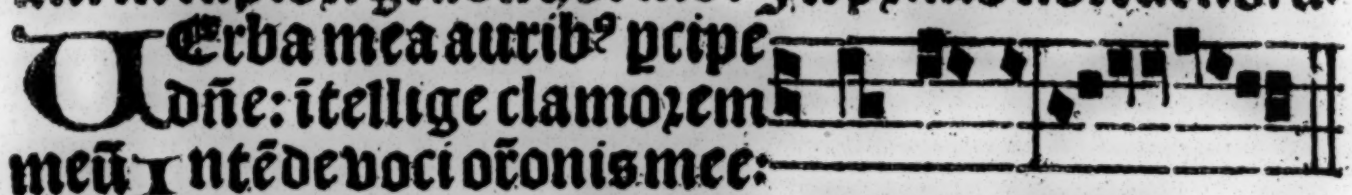 UErba mea auribꝰ ꝑcipe
dñe: ītellige clamoꝛem
meū Intēde voci or̄onis mee: